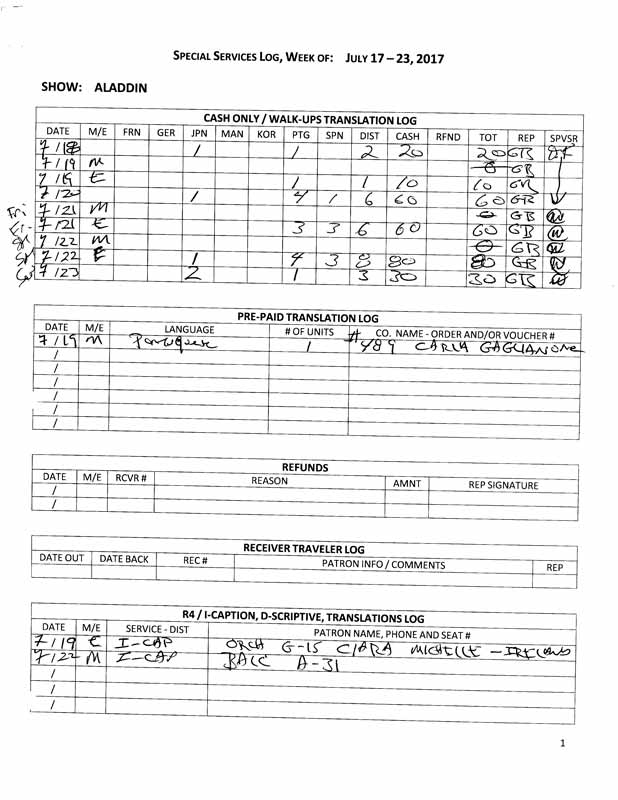 SPECIAL SERVICES LOG, WEEK OF: JULY 17 – 23, 2017
SHOW: ALADDIN
CASH ONLY / WALK-UPS TRANSLATION LOG
DATE M/E FRN GER JPN MAN KOR PTG SPN DIST CASH RFND TOT REP SPVSR
7/18 1 1 2 20 20 GB
7/19 M 0 GB
7/19 E 1 1 10 10 GB
7/20 1 4 1 6 60 60 GB
Fri 7/21 M 0 GB
7/21 E 3 3 6 60 60 GB
7/22 M 0 GB
7/22 E 1 4 3 8 80 80 GB
7/23 2 1 3 30 30 GB
PRE-PAID TRANSLATION LOG
DATE M/E LANGUAGE # OF UNITS CO. NAME - ORDER AND/OR VOUCHER #
7/19 M Portuguese 1 #489 CARLA GAGLIANONE
/
/
/
/
/
/
REFUNDS
DATE M/E RCVR # REASON AMNT REP SIGNATURE
/
/
RECEIVER TRAVELER LOG
DATE OUT DATE BACK REC # PATRON INFO / COMMENTS REP
R4 / I-CAPTION, D-SCRIPTIVE, TRANSLATIONS LOG
DATE M/E SERVICE - DIST PATRON NAME, PHONE AND SEAT #
7/19 E I-CAP ORCH G-15 CIARA MICHELLE - IRELAND
7/22 M I-CAP BALC A-31
/
/
/
1